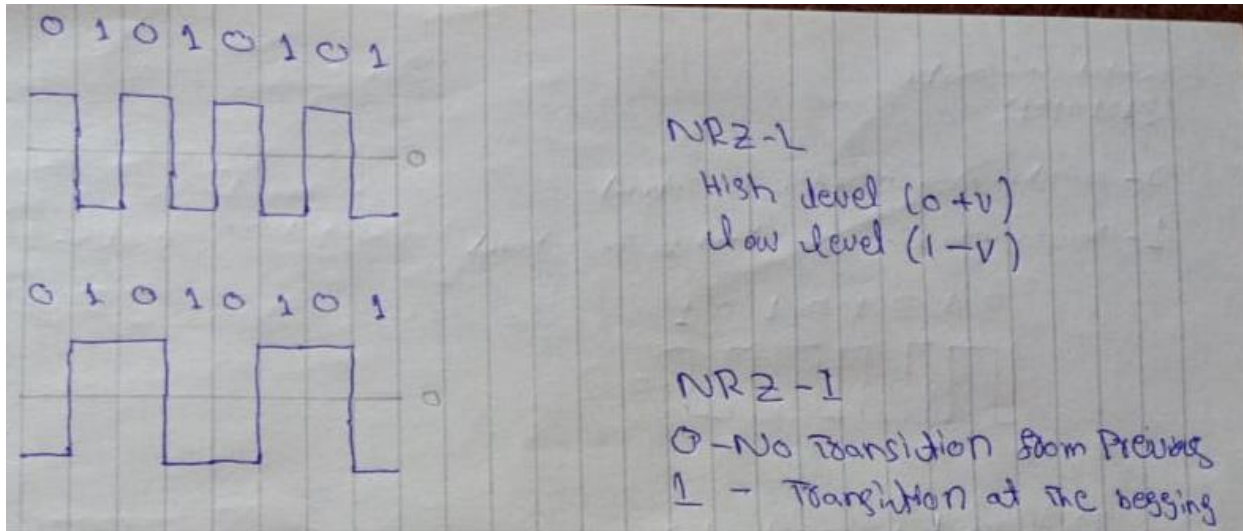 0 1 0 1 0 1 0 1
0
NRZ-L
High level (0 +v)
Low level (1 -v)
0 1 0 1 0 1 0 1
0
NRZ-I
0 - No Transition from Previous
1 - Transition at the begging